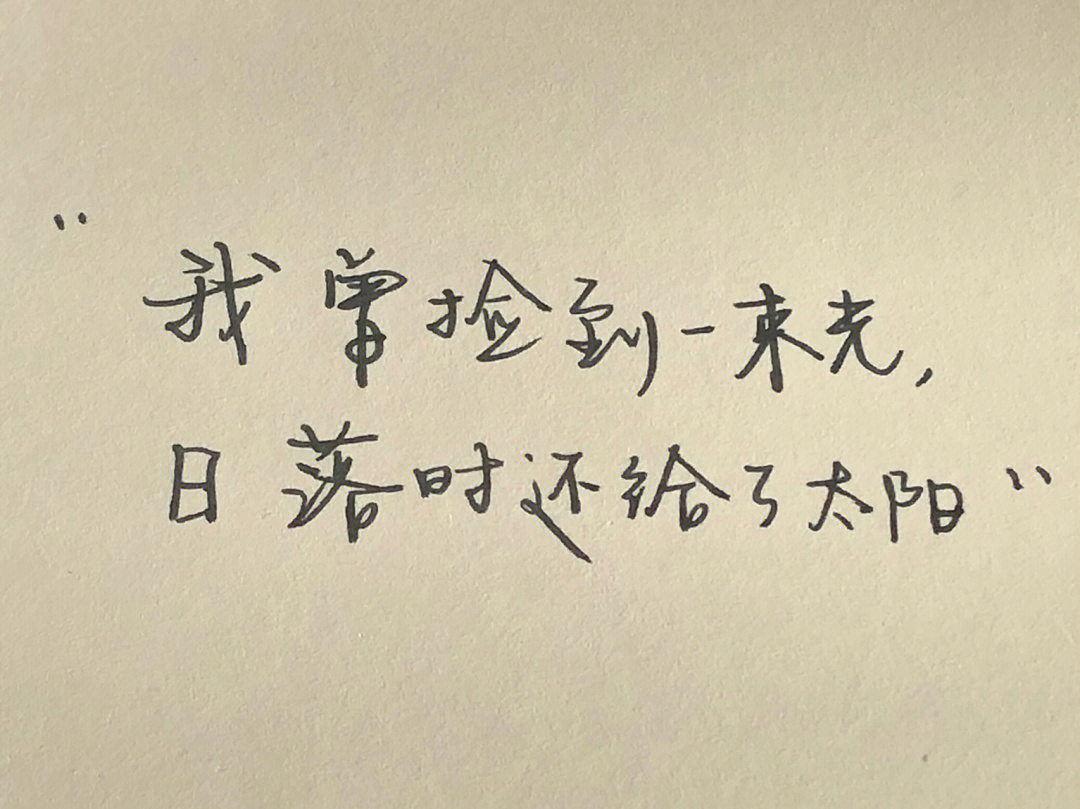 “我曾捡到一束光,
日落时还给了太阳”